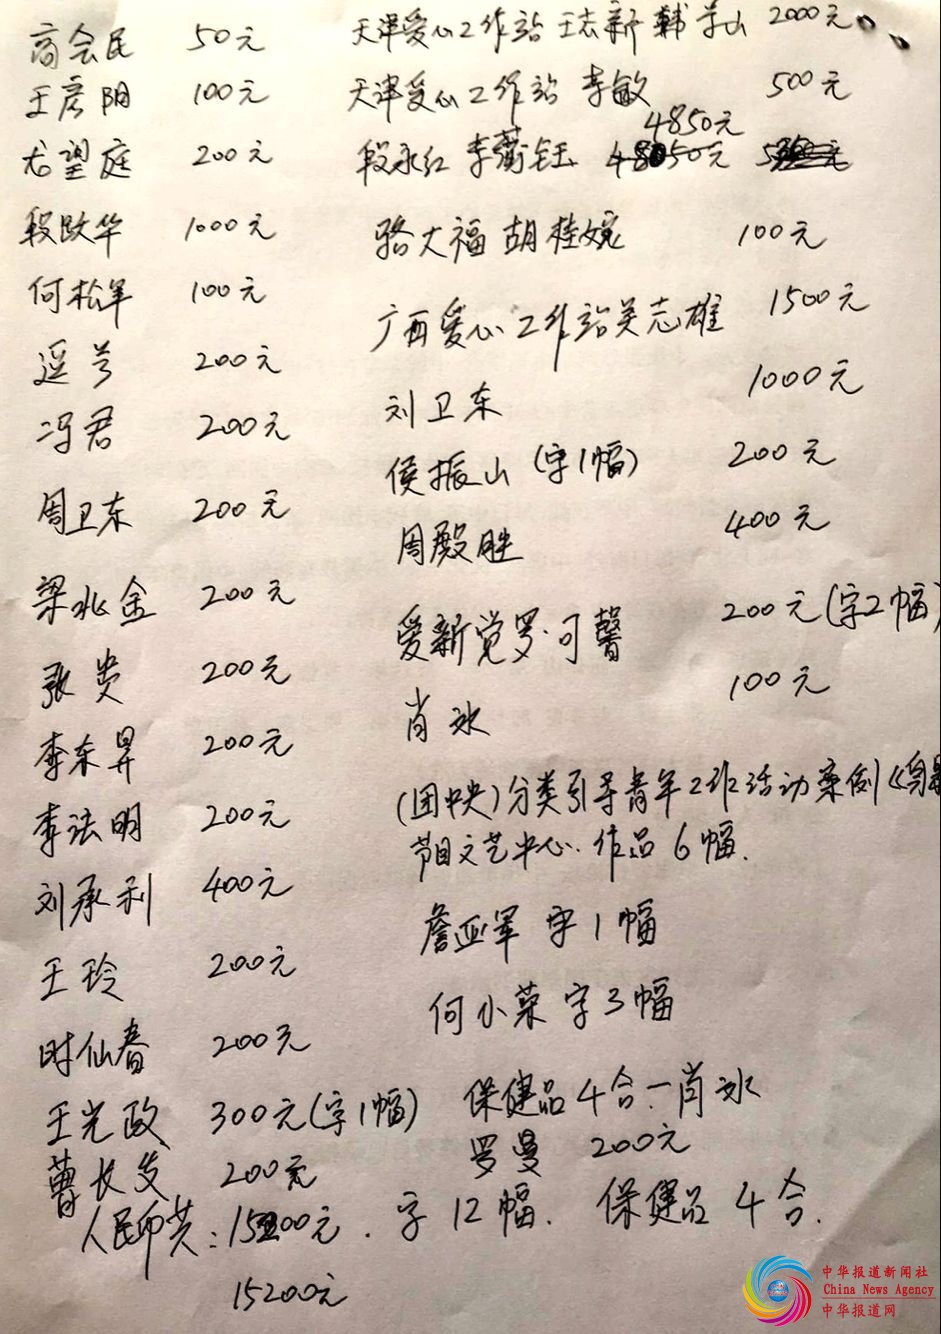 商会民 50元
王彦阳 100元
尤望庭 200元
段跃华 1000元
何松年 100元
遥兮 200元
冯君 200元
周卫东 200元
梁兆金 200元
张贵 200元
李东昇 200元
李法明 200元
刘承利 400元
王玲 200元
时仙春 200元
王光政 300元(字1幅)
曹长发 200元
天津爱心工作站 王志新 韩 山 2000元
天津爱心工作站 李敏 500元
4850元
段永红 李 钰
骆大福 胡桂婉 100元
广西爱心工作站关志雄 1500元
刘卫东 1000元
侯振山(字1幅) 200元
周殿胜 400元
爱新觉罗·可馨 200元(字2幅)
肖冰 100元
(团中央)分类引导青年工作活动案例《
节目文艺中心. 作品6幅.
詹亚军 字1幅
何小菜 字3幅
保健品4合.—肖冰
罗曼 200元
人民币共:15200元. 字12幅. 保健品4合.
15200元
中华报道新闻社
China News Agency
中华报道网